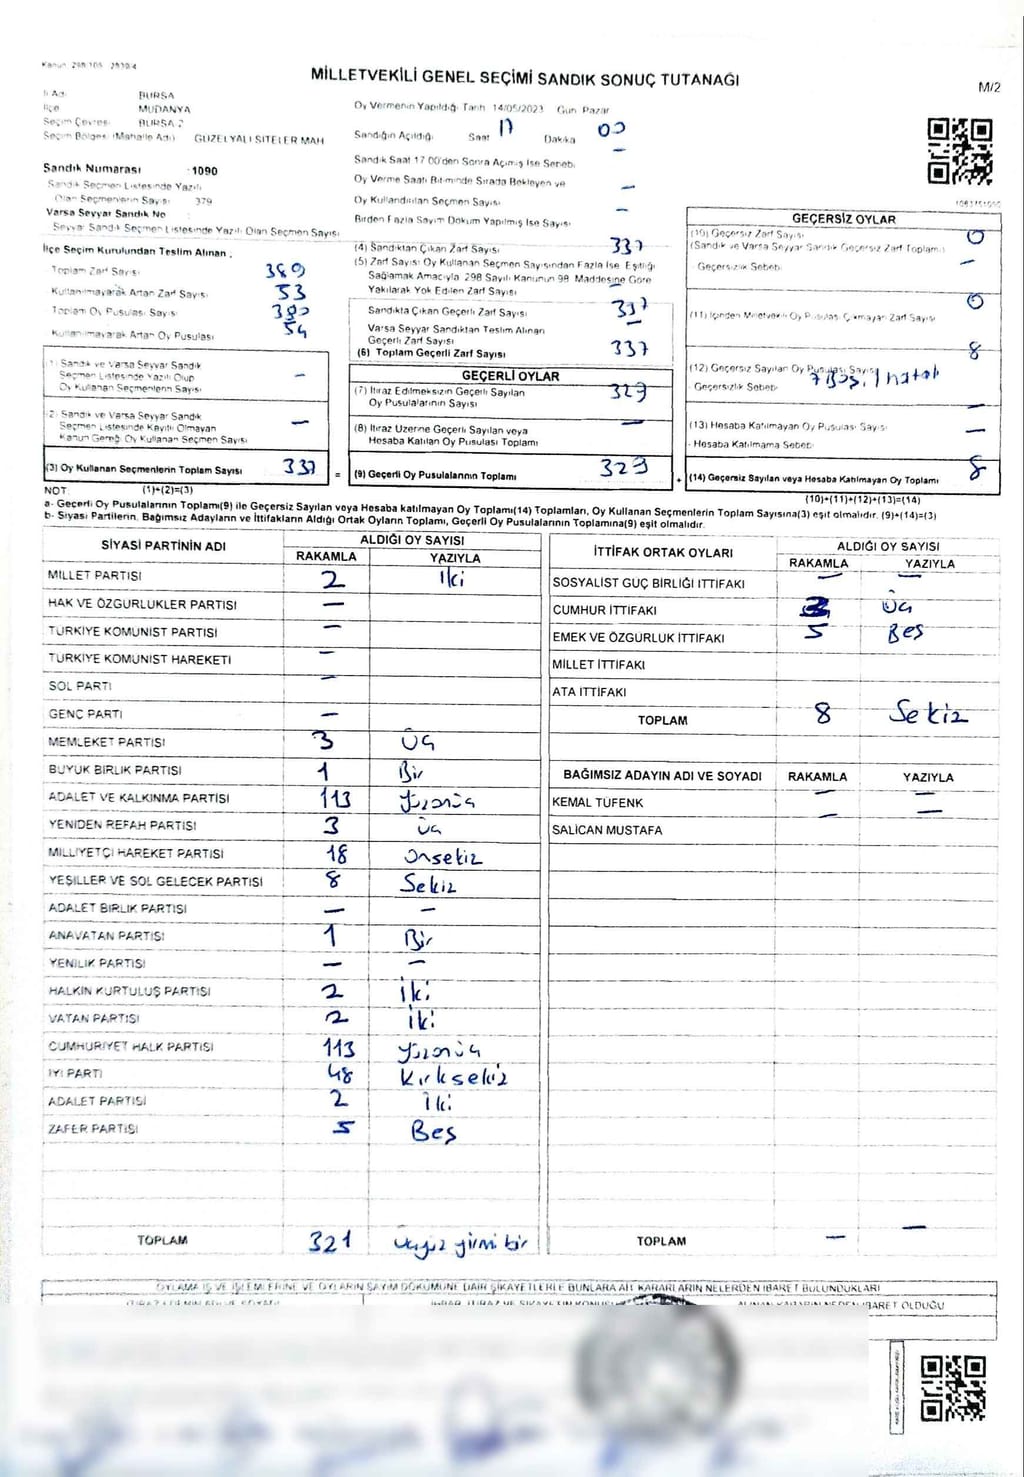 Kanun: 298/105 2839/4
MİLLETVEKİLİ GENEL SEÇİMİ SANDIK SONUÇ TUTANAĞI
M/2
İl Adı BURSA
İlçe MUDANYA
Seçim Çevresi BURSA 2
Seçim Bölgesi (Mahalle Adı) GÜZELYALI SİTELER MAH
Oy Vermenin Yapıldığı Tarih 14/05/2023 Gün Pazar
Sandığın Açıldığı Saat 17 Dakika 00
Sandık Saat 17:00'den Sonra Açılmış İse Sebebi –
Oy Verme Saati Bitiminde Sırada Bekleyen ve
Oy Kullandırılan Seçmen Sayısı –
Birden Fazla Sayım Döküm Yapılmış İse Sayısı –
Sandık Numarası : 1090
Sandık Seçmen Listesinde Yazılı
Olan Seçmenlerin Sayısı 379
Varsa Seyyar Sandık No
Seyyar Sandık Seçmen Listesinde Yazılı Olan Seçmen Sayısı
İlçe Seçim Kurulundan Teslim Alınan ;
Toplam Zarf Sayısı
Kullanılmayarak Artan Zarf Sayısı 53
Toplam Oy Pusulası Sayısı
Kullanılmayarak Artan Oy Pusulası 54
(1) Sandık ve Varsa Seyyar Sandık
Seçmen Listesinde Yazılı Olup
Oy Kullanan Seçmenlerin Sayısı –
(2) Sandık ve Varsa Seyyar Sandık
Seçmen Listesinde Kayıtlı Olmayan
Kanun Gereği Oy Kullanan Seçmen Sayısı –
(3) Oy Kullanan Seçmenlerin Toplam Sayısı 337 =
(4) Sandıktan Çıkan Zarf Sayısı 337
(5) Zarf Sayısı Oy Kullanan Seçmen Sayısından Fazla İse Eşitliği
Sağlamak Amacıyla 298 Sayılı Kanunun 98. Maddesine Göre
Yakılarak Yok Edilen Zarf Sayısı –
Sandıkta Çıkan Geçerli Zarf Sayısı 337
Varsa Seyyar Sandıktan Teslim Alınan
Geçerli Zarf Sayısı –
(6) Toplam Geçerli Zarf Sayısı 337
GEÇERLİ OYLAR
(7) İtiraz Edilmeksizin Geçerli Sayılan
Oy Pusulalarının Sayısı 329
(8) İtiraz Üzerine Geçerli Sayılan veya
Hesaba Katılan Oy Pusulası Toplamı –
(9) Geçerli Oy Pusulalarının Toplamı 329 +
GEÇERSİZ OYLAR
(10) Geçersiz Zarf Sayısı 0
(Sandık ve Varsa Seyyar Sandık Geçersiz Zarf Toplamı)
- Geçersizlik Sebebi –
(11) İçinden Milletvekili Oy Pusulası Çıkmayan Zarf Sayısı 0
(12) Geçersiz Sayılan Oy Pusulası Sayısı 8
Geçersizlik Sebebi 7 Boş, 1 hatalı
(13) Hesaba Katılmayan Oy Pusulası Sayısı –
- Hesaba Katılmama Sebebi –
(14) Geçersiz Sayılan veya Hesaba Katılmayan Oy Toplamı 8
NOT: (1)+(2)=(3)
(10)+(11)+(12)+(13)=(14)
a- Geçerli Oy Pusulalarının Toplamı(9) ile Geçersiz Sayılan veya Hesaba katılmayan Oy Toplamı(14) Toplamları, Oy Kullanan Seçmenlerin Toplam Sayısına(3) eşit olmalıdır. (9)+(14)=(3)
b- Siyasi Partilerin, Bağımsız Adayların ve İttifakların Aldığı Ortak Oyların Toplamı, Geçerli Oy Pusulalarının Toplamına(9) eşit olmalıdır.
SİYASİ PARTİNİN ADI ALDIĞI OY SAYISI
RAKAMLA YAZIYLA
MİLLET PARTİSİ 2 İki
HAK VE ÖZGÜRLÜKLER PARTİSİ –
TÜRKİYE KOMÜNİST PARTİSİ –
TÜRKİYE KOMÜNİST HAREKETİ –
SOL PARTİ –
GENÇ PARTİ –
MEMLEKET PARTİSİ 3 Üç
BÜYÜK BİRLİK PARTİSİ 1 Bir
ADALET VE KALKINMA PARTİSİ 113 Yüzonüç
YENİDEN REFAH PARTİSİ 3 üç
MİLLİYETÇİ HAREKET PARTİSİ 18 Onsekiz
YEŞİLLER VE SOL GELECEK PARTİSİ 8 Sekiz
ADALET BİRLİK PARTİSİ – –
ANAVATAN PARTİSİ 1 Bir
YENİLİK PARTİSİ – –
HALKIN KURTULUŞ PARTİSİ 2 İki
VATAN PARTİSİ 2 İki
CUMHURİYET HALK PARTİSİ 113 Yüzonüç
İYİ PARTİ 48 Kırksekiz
ADALET PARTİSİ 2 İki
ZAFER PARTİSİ 5 Beş
TOPLAM 321 üçyüz yirmi bir
İTTİFAK ORTAK OYLARI ALDIĞI OY SAYISI
RAKAMLA YAZIYLA
SOSYALİST GÜÇ BİRLİĞİ İTTİFAKI – –
CUMHUR İTTİFAKI 3 Üç
EMEK VE ÖZGÜRLÜK İTTİFAKI 5 Beş
MİLLET İTTİFAKI
ATA İTTİFAKI
TOPLAM 8 Sekiz
BAĞIMSIZ ADAYIN ADI VE SOYADI RAKAMLA YAZIYLA
KEMAL TÜFENK – –
SALİCAN MUSTAFA – –
TOPLAM – –
OYLAMA İŞ VE İŞLEMLERİNE VE OYLARIN SAYIM DÖKÜMÜNE DAİR ŞİKAYETLERLE BUNLARA AİT KARARLARIN NELERDEN İBARET BULUNDUKLARI